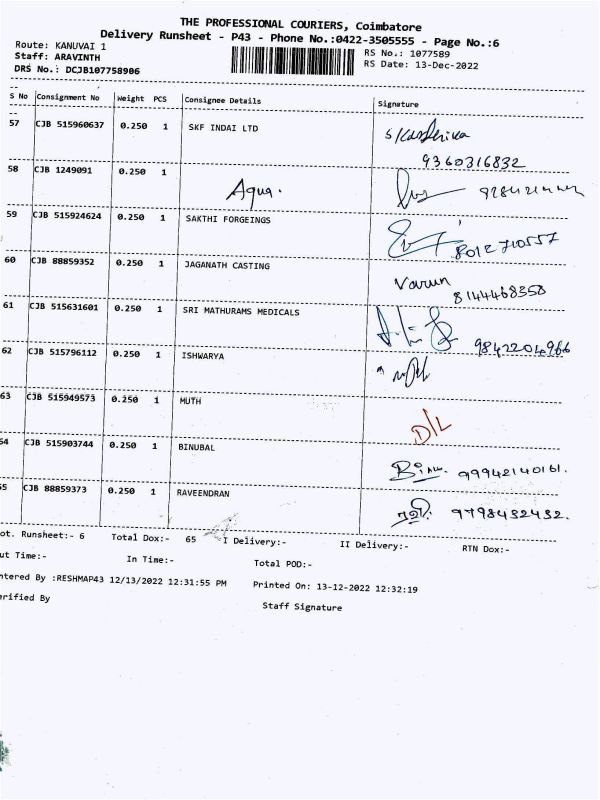 THE PROFESSIONAL COURIERS, Coimbatore
Delivery Runsheet - P43 - Phone No.:0422-3505555 - Page No.:6
Route: KANUVAI 1
Staff: ARAVINTH
DRS No.: DCJB107758906
RS No.: 1077589
RS Date: 13-Dec-2022
S No Consignment No Weight PCS Consignee Details Signature
57 CJB 515960637 0.250 1 SKF INDAI LTD
9360316832
58 CJB 1249091 0.250 1 Aqua.
59 CJB 515924624 0.250 1 SAKTHI FORGEINGS
8012710557
60 CJB 88859352 0.250 1 JAGANATH CASTING Varun
8144468358
61 CJB 515631601 0.250 1 SRI MATHURAMS MEDICALS
9842204966
62 CJB 515796112 0.250 1 ISHWARYA
63 CJB 515949573 0.250 1 MUTH D/L
54 CJB 515903744 0.250 1 BINUBAL
Binu. 99942140161.
55 CJB 88859373 0.250 1 RAVEENDRAN
9798432432.
ot. Runsheet:- 6 Total Dox:- 65 I Delivery:- II Delivery:- RTN Dox:-
ut Time:- In Time:- Total POD:-
ntered By :RESHMAP43 12/13/2022 12:31:55 PM Printed On: 13-12-2022 12:32:19
erified By Staff Signature